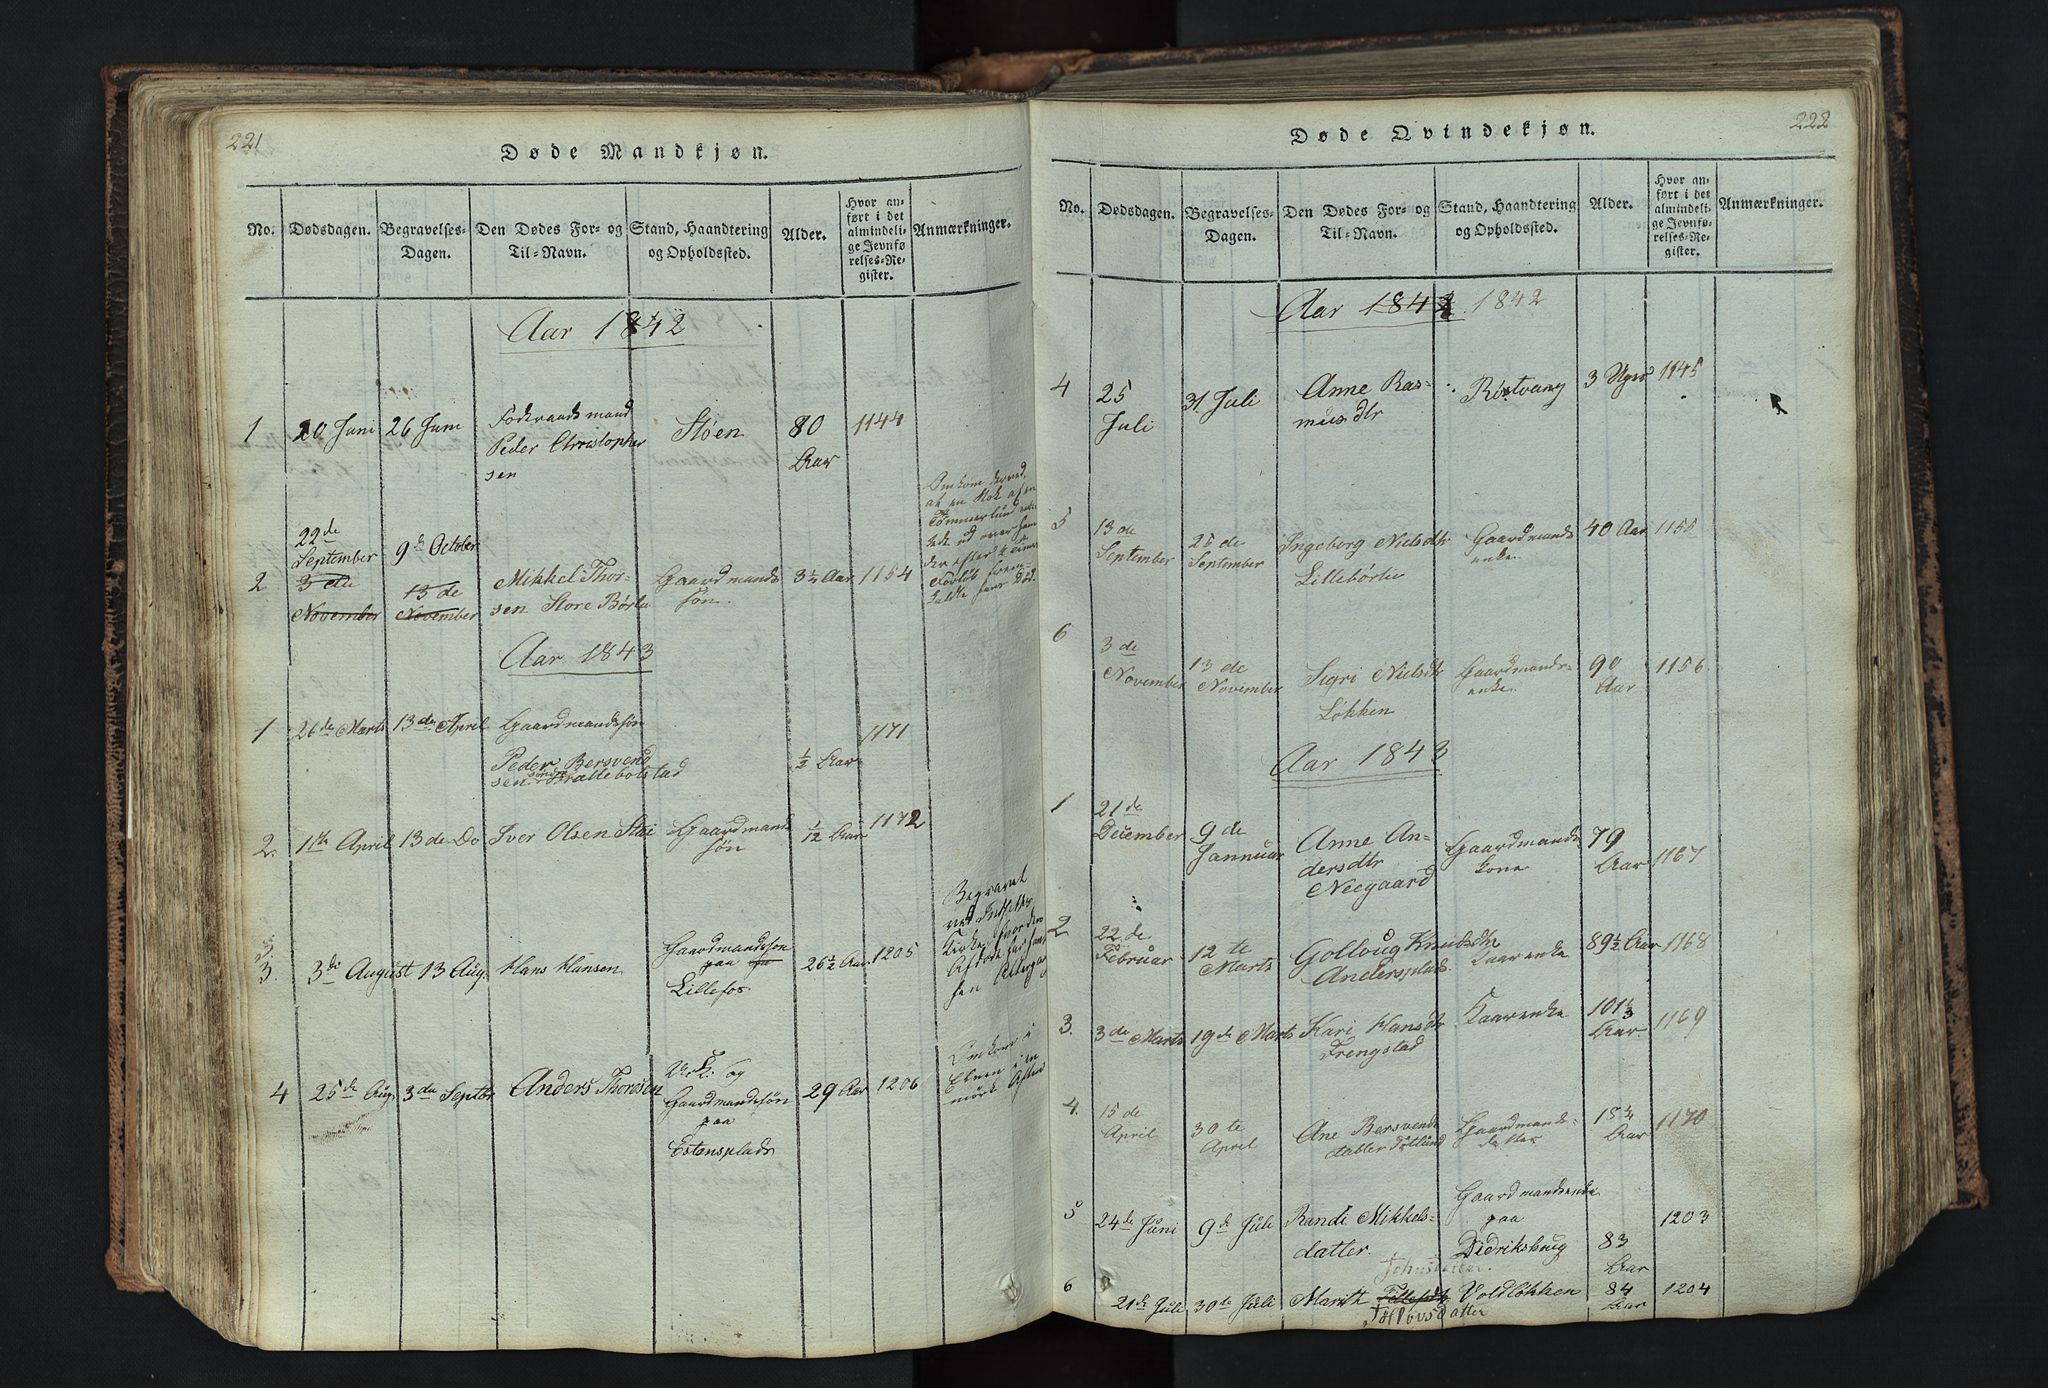 221
Døde Mandkjøn.
No.
Dødsdagen.
Begravelses-
Dagen.
Den Dødes For- og
Til-Navn.
Stand, Haandtering
og Opholdssted.
Alder.
Hvor an-
ført i det
almindeli-
ge Jevnfø-
relses-Re-
gister.
Anmærkninger.
Aar 1842
1
20 Juni
26 Juni
Foderaadsmand
Peder Christopher
sen
Støen
80
Aar
1144
22de
September
3 die
November
2
9de October
13 de
November
Mikkel Thor-
sen Store Børli
Gaardmands
søn.
3½ Aar
1154
Omkom derved,
at en Stok af en
Tømmerlund
ud over ham
Aar 1843
1
26de Marts
13de April
Gaardmandssøn
Peder Bersvend
sen søndre Hallebolstad
½ Aar
1171
2.
11te April
13 de Do
Iver Olsen Støi
Gaardmands
søn
1/12 Aar
1172
3.
3de August
13 Aug.
Hans Hansen
Gaardmandssøn
paa
Lillefos
26½ Aar
1205
Begravet
ved Insethes
Kirke, hvor den
4
25de Aug.
3die Septbr
Anders Thoresen
U: K: og
Gaardmandssøn
paa
Estensplads
29 Aar
1206
Omkom i
Elven i en
mørk Aften
222
Døde Qvindekjøn.
No.
Dødsdagen.
Begravelses-
Dagen.
Den Dødes For- og
Til-Navn.
Stand, Haandtering
og Opholdssted.
Alder.
Hvor an-
ført i det
almindeli-
ge Jevnfø-
relses-Re-
gister.
Anmærkninger.
Aar 1842 1842
4
25
Juli
31 Juli
Anne Ras-
mus dtr
Røstvang
3 Uger
1145
5
13 de
September
25 de
September
Ingeborg Nielsdtr
Lillebørlie
Gaardmands
enke.
40 Aar
1155
6
3 de
November
13 de
November
Sigri Nielsdtr
Løkken
Gaardmands-
enke.
90
Aar
1156
Aar 1843
1
21de
December
9 de
Jannuar
Anne An-
dersdtr
Neegaard
Gaardmands
kone
79
Aar
1167
2
22 de
Februar
12 te
Marts
Gollaug Knudsdtr
Andersplads
Kaarenke
89½ Aar
1168
3.
3de Marts
19de Marts
Kari Hansdtr
Frengstad
Kaarenke
101⅓
Aar
1169
4.
15 de
April
30 te
April
Ane Bersvends
datter Estlund
Gaardmands-
datter
18¾
Aar
1170
5
24de Juni
9de Juli
Randi Mikkels-
datter.
Gaardmandsenke
paa
Didrikshaug
83
Aar
1203
6
21de Juli
30te Juli
Marith
Johnsdatter.
Voldløkken
84
Aar
1204